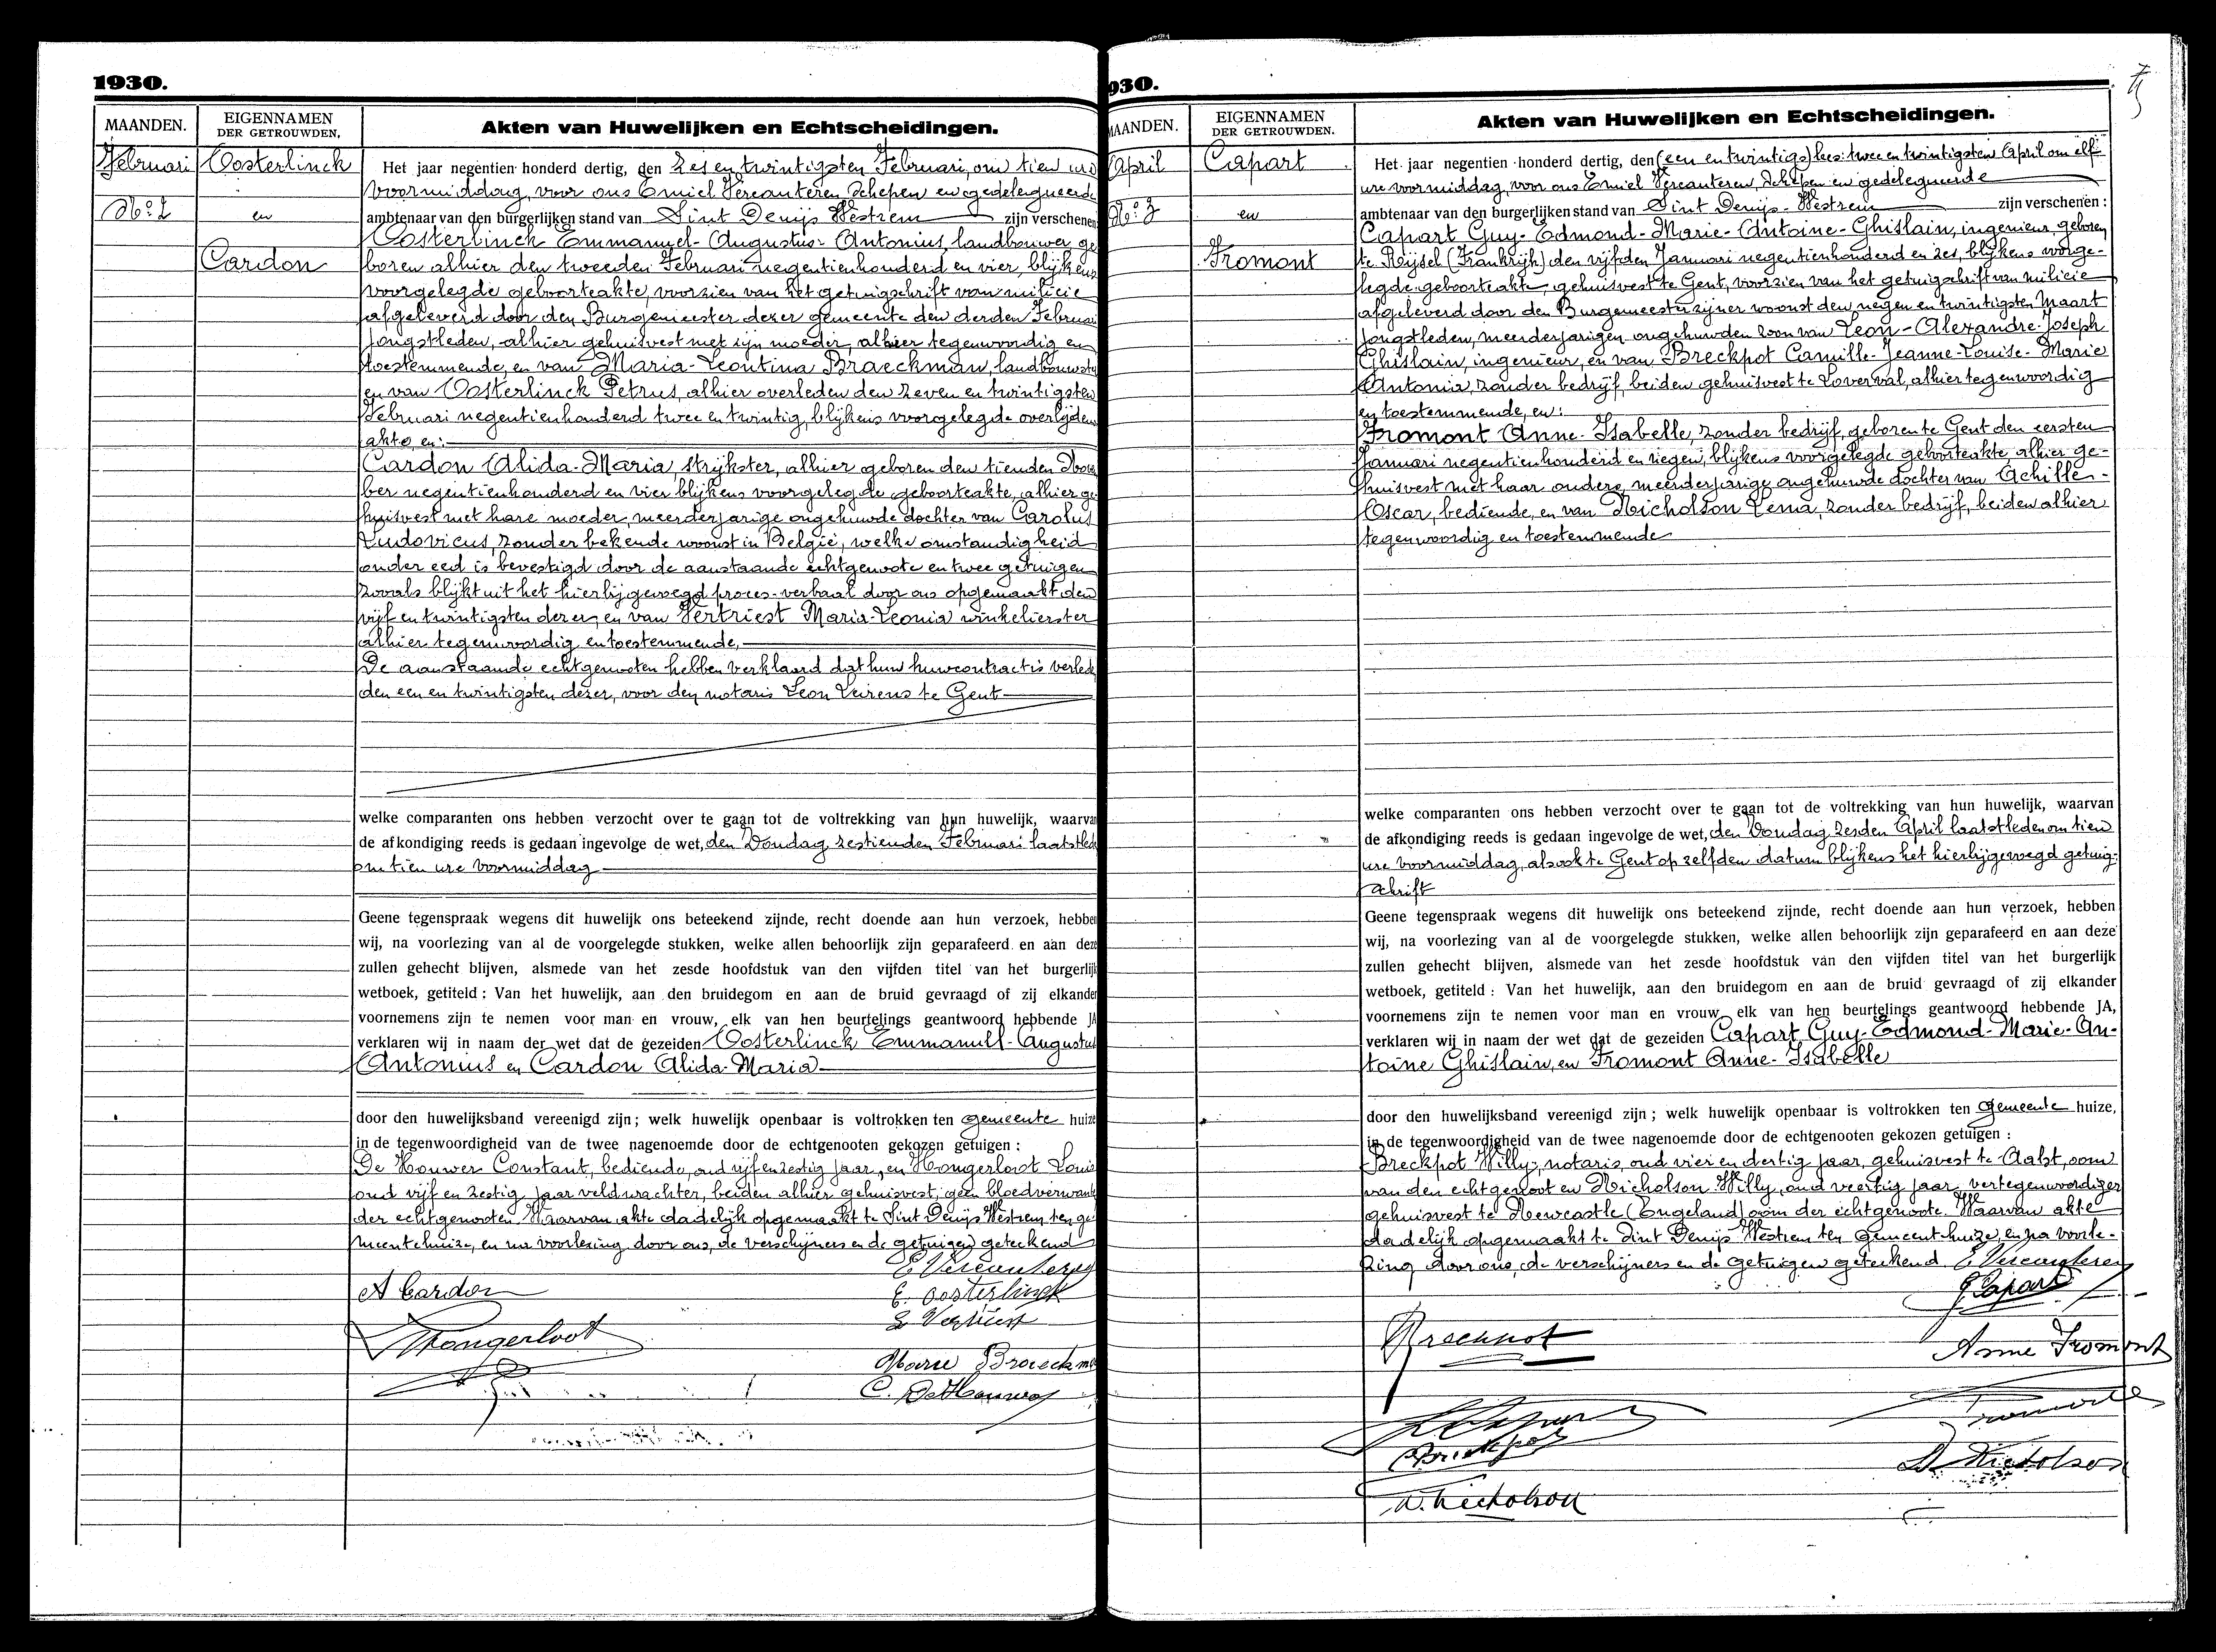 1930.
MAANDEN.
EIGENNAMEN
DER GETROUWDEN,
Akten van Huwelijken en Echtscheidingen.
Februari
Oosterlinck
No: 2
en
Cardon
Het jaar negentien honderd dertig, den zes en twintigsten Februari, om tien ure
voormiddag, voor ons Emiel Vercauteren, Schepen en gedelegueerde
ambtenaar van den burgerlijken stand van Sint Denijs Westrem zijn verschenen
Oosterlinck Emmanuel-Augustus-Antonius, landbouwer ge
boren alhier den tweeden Februari negentienhonderd en vier, blijkens
voorgelegde geboorteakte, voorzien van het getuigschrift van milicie
afgeleverd door den Burgemeester dezer gemeente den derden Februari
jongstleden, alhier gehuisvest met zijn moeder, alhier tegenwoordig en
toestemmende, en van Maria-Leontina Braeckman, landbouwster
en van Oosterlinck Petrus, alhier overleden den zeven en twintigsten
Februari negentienhonderd twee en twintig, blijkens voorgelegde overlijdens
akte, en:
Cardon Alida-Maria, strijkster, alhier geboren den tienden
ber negentienhonderd en vier blijkens voorgelegde geboorteakte, alhier ge
huisvest met hare moeder, meerderjarige ongehuwde dochter van Carolus
Ludovicus, zonder bekende woonst in België, welke omstandigheid
onder eed is bevestigd door de aanstaande echtgenoote en twee getuigen
zooals blijkt uit het hierbijgevoegd proces-verbaal door ons opgemaakt den
vijf en twintigsten dezer, en van Vertriest Maria-Leonia winkelierster
alhier tegenwoordig en toestemmende,
De aanstaande echtgenooten hebben verklaard dat hun huwcontract is verleden
den een en twintigsten dezer, voor den notaris Leon Leirens te Gent
welke comparanten ons hebben verzocht over te gaan tot de voltrekking van hun huwelijk, waarvan
de afkondiging reeds is gedaan ingevolge de wet, den Zondag zestienden Februari laatstleden
om tien ure voormiddag
Geene tegenspraak wegens dit huwelijk ons beteekend zijnde, recht doende aan hun verzoek, hebben
wij, na voorlezing van al de voorgelegde stukken, welke allen behoorlijk zijn geparafeerd en aan deze
zullen gehecht blijven, alsmede van het zesde hoofdstuk van den vijfden titel van het burgerlijk
wetboek, getiteld : Van het huwelijk, aan den bruidegom en aan de bruid gevraagd of zij elkander
voornemens zijn te nemen voor man en vrouw, elk van hen beurtelings geantwoord hebbende JA
verklaren wij in naam der wet dat de gezeiden Oosterlinck Emmanuel-Augustus
Antonius en Cardon Alida-Maria
door den huwelijksband vereenigd zijn; welk huwelijk openbaar is voltrokken ten gemeente huize
in de tegenwoordigheid van de twee nagenoemde door de echtgenooten gekozen getuigen :
De Houwer Constant, bediende, oud vijf en zestig jaar, en Hongerloot Louis
oud vijf en zestig jaar veldwachter, beiden alhier gehuisvest, geen bloedverwant
der echtgenooten. Waarvan akte dadelijk opgemaakt te Sint Denijs Westrem ten ge
meentehuize, en na voorlezing door ons, de verschijners en de getuigen geteekend
E Vercauteren
A Cardon
E. Oosterlinck
Vertriest
Hongerloot
Marie Braeckman
C. De Houwer
930.
MAANDEN.
EIGENNAMEN
DER GETROUWDEN.
Akten van Huwelijken en Echtscheidingen.
April
Capart
No: 3
en
Fromont
Het jaar negentien honderd dertig, den (een en twintigs) lees: twee en twintigsten April om elf
ure voormiddag, voor ons Emiel Vercauteren, Schepen en gedelegueerde
ambtenaar van den burgerlijken stand van Sint Denijs-Westrem zijn verschenen :
Capart Guy-Edmond-Marie-Antoine-Ghislain, ingenieur, geboren
te Rijsel (Frankrijk) den vijfden Januari negentienhonderd en zes, blijkens voorge-
legde geboorteakte, gehuisvest te Gent, voorzien van het getuigschrift van milicie
afgeleverd door den Burgemeester zijner woonst den negen en twintigsten Maart
jongstleden, meerderjarigen ongehuwden zoon van Leon-Alexandre-Joseph
Ghislain, ingenieur, en van Breckpot Camille-Jeanne-Louise-Marie
Antonia, zonder bedrijf, beiden gehuisvest te Loverval, alhier tegenwoordig
en toestemmende, en:
Fromont Anne-Isabelle, zonder bedrijf, geboren te Gent den eersten
Januari negentienhonderd en negen, blijkens voorgelegde geboorteakte, alhier ge-
huisvest met haar ouders, meerderjarige ongehuwde dochter van Achille-
Oscar, bediende, en van Nicholson Lena, zonder bedrijf, beiden alhier
tegenwoordig en toestemmende
welke comparanten ons hebben verzocht over te gaan tot de voltrekking van hun huwelijk, waarvan
de afkondiging reeds is gedaan ingevolge de wet, den Zondag zesden April laatstleden om tien
ure voormiddag, alsook te Gent op zelfden datum blijkens het hierbijgevoegd getuig-
schrift
Geene tegenspraak wegens dit huwelijk ons beteekend zijnde, recht doende aan hun verzoek, hebben
wij, na voorlezing van al de voorgelegde stukken, welke allen behoorlijk zijn geparafeerd en aan deze
zullen gehecht blijven, alsmede van het zesde hoofdstuk van den vijfden titel van het burgerlijk
wetboek, getiteld : Van het huwelijk, aan den bruidegom en aan de bruid gevraagd of zij elkander
voornemens zijn te nemen voor man en vrouw, elk van hen beurtelings geantwoord hebbende JA,
verklaren wij in naam der wet dat de gezeiden Capart Guy-Edmond-Marie-An-
toine Ghislain, en Fromont Anne-Isabelle
door den huwelijksband vereenigd zijn ; welk huwelijk openbaar is voltrokken ten Gemeente huize,
in de tegenwoordigheid van de twee nagenoemde door de echtgenooten gekozen getuigen :
Breckpot Willy, notaris, oud vier en dertig jaar, gehuisvest te Aalst, oom
van den echtgenoot en Nicholson Willy, oud veertig jaar, vertegenwoordiger
gehuisvest te Newcastle (Engeland) oom der echtgenoote. Waarvan akte
dadelijk opgemaakt te Sint Denijs Westrem ten Gemeentehuize, en na voorle-
zing door ons, de verschijners en de getuigen geteekend. E Vercauteren
G Capart
Breckpot
Anne Fromont
Breckpot
Nicholson
W. Nicholson